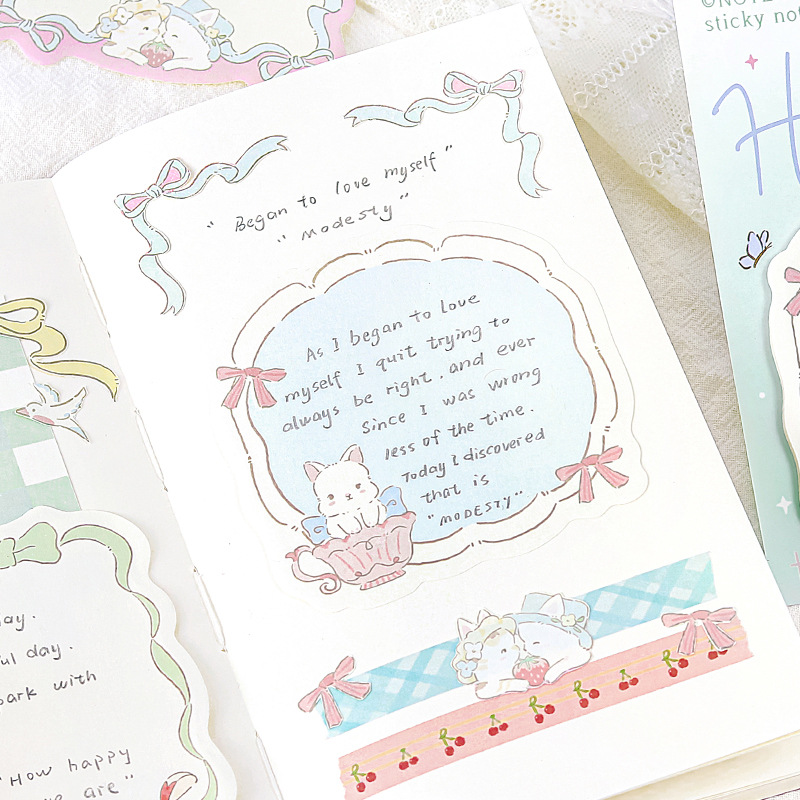 ©NOTE
sticky no
H
" Began to love myself "
" Modesty "
As I began to love
myself I quit trying to
always be right. and ever
since I was wrong
less of the time.
Today I discovered
that is
"MODESTY"
ay.
ful day.
park with
"How happy
are"